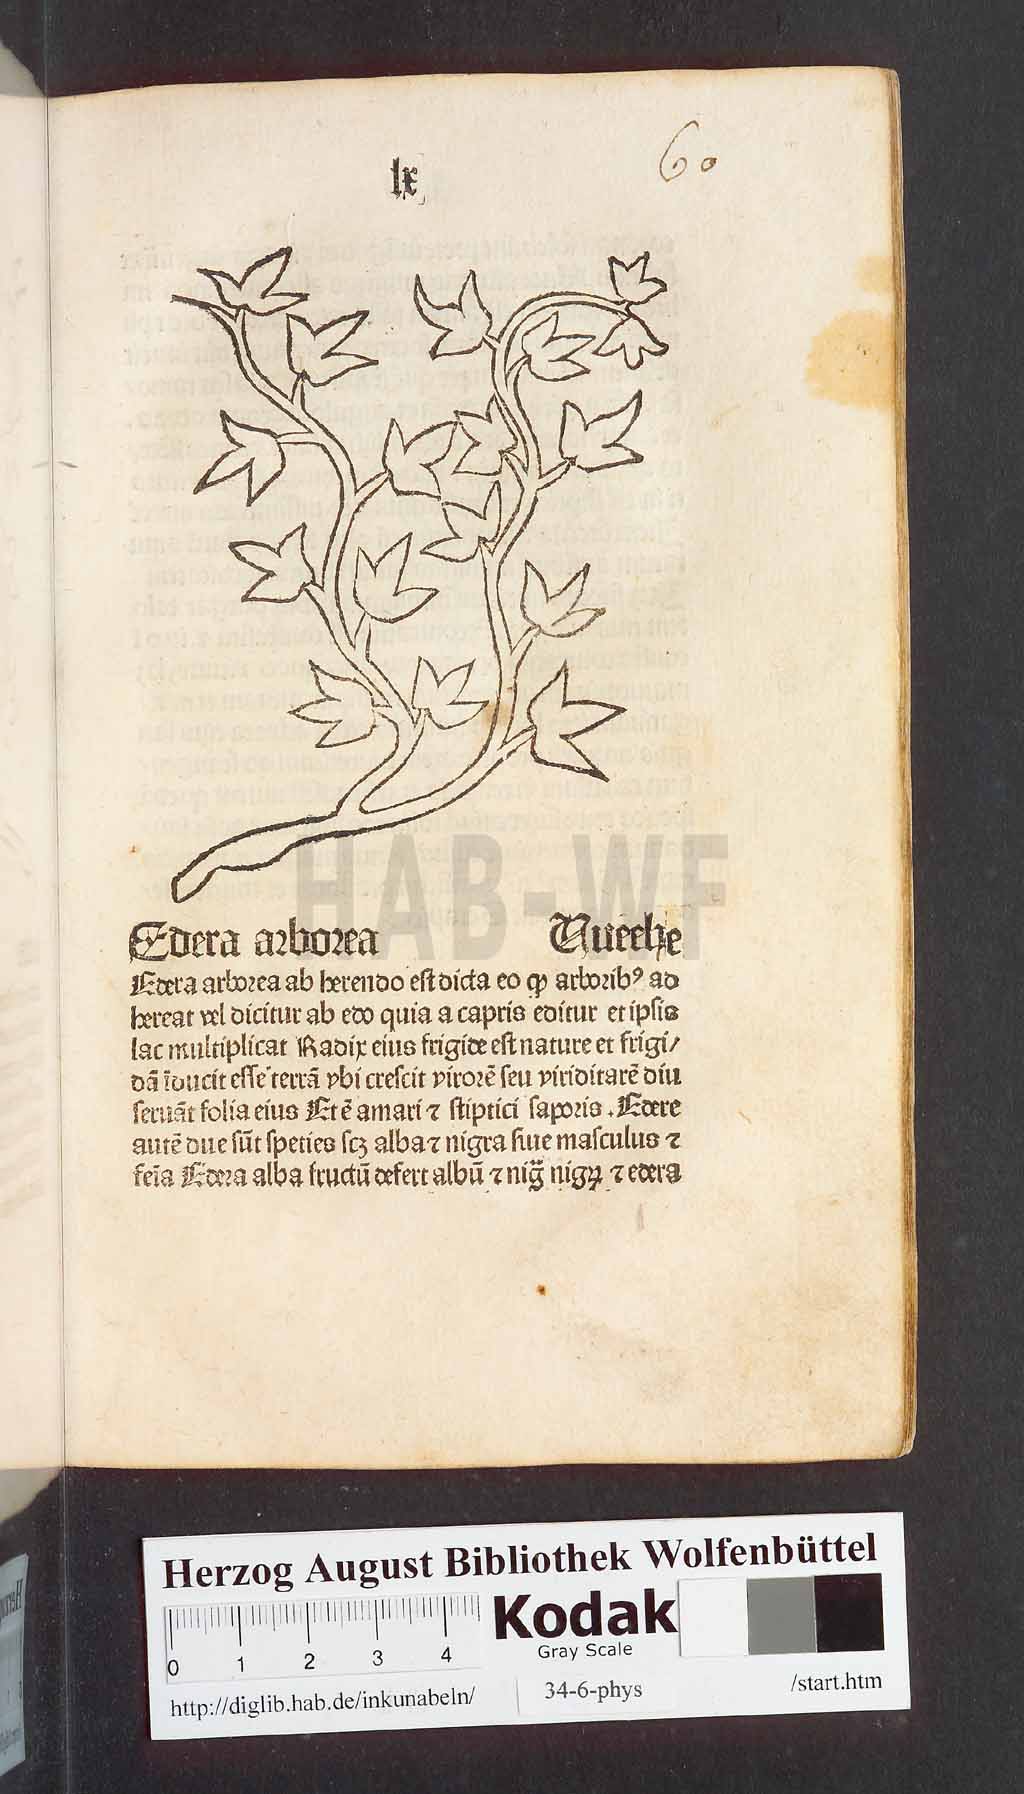 lx
60
HAB-WF
Edera arborea
Edera arborea ab herendo est dicta eo ꝙ arboribꝰ ad
hereat vel dicitur ab edo quia a capris editur et ipsis
lac multiplicat Radix eius frigide est nature et frigi/
dā īducit esse terrā vbi crescit virorē seu viriditarē diu
seruāt folia eius Et ē amari ⁊ stiptici saporis. Edere
autē due sūt speties scꝫ alba ⁊ nigra siue masculus ⁊
feīa Edera alba fructū defert albū ⁊ nigꝝ ⁊ edera
Herzog August Bibliothek Wolfenbüttel
0 1 2 3 4
Kodak
Gray Scale
http://diglib.hab.de/inkunabeln/
34-6-phys
/start.htm